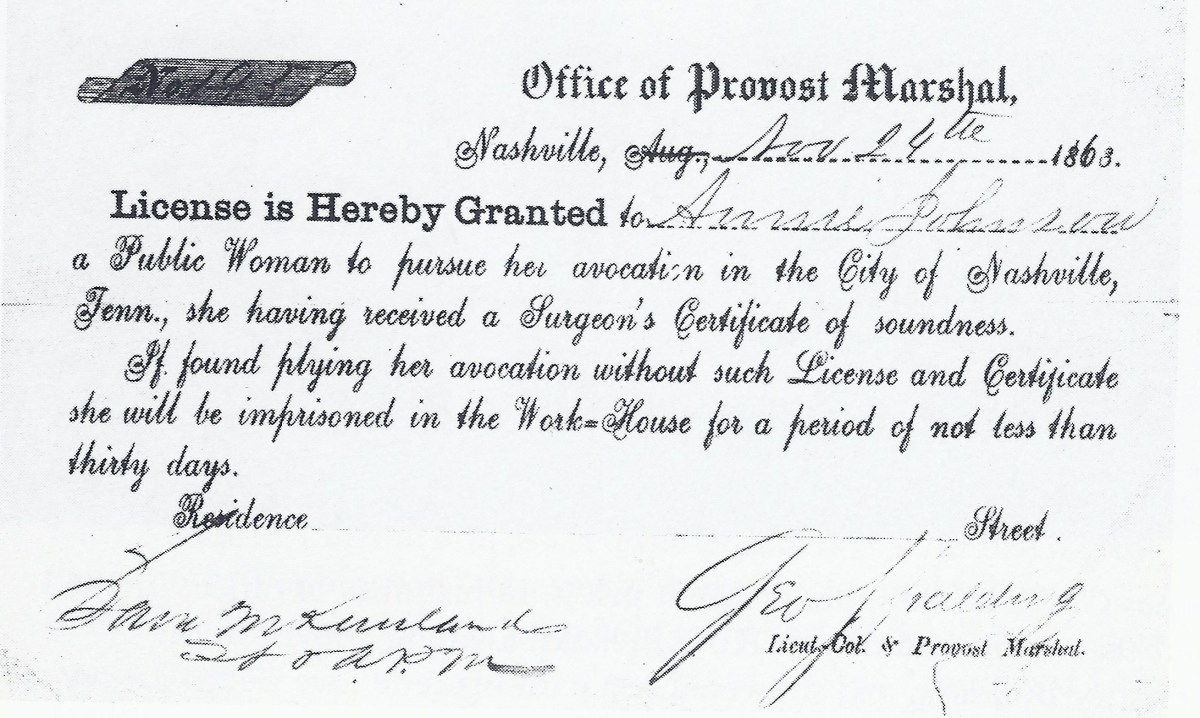 No
Office of Provost Marshal,
Nashville, Aug., Nov 24th 1863.
License is Hereby Granted to Annie Johnson
a Public Woman to pursue her avocation in the City of Nashville,
Tenn., she having received a Surgeon's Certificate of soundness.
If found plying her avocation without such License and Certificate
she will be imprisoned in the Work=House for a period of not less than
thirty days.
Residence Street.
Geo Spalding
Lieut.-Col. & Provost Marshal.